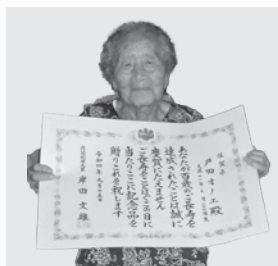 佐賀市
戸田キノエ殿
あなたが百歳のご長寿を
達成されたことは誠に
慶賀にたえません
ご長寿をことほぐこの日に
当たりここに記念品を
贈りこれを祝します
令和四年九月十五日
内閣総理大臣 岸田文雄